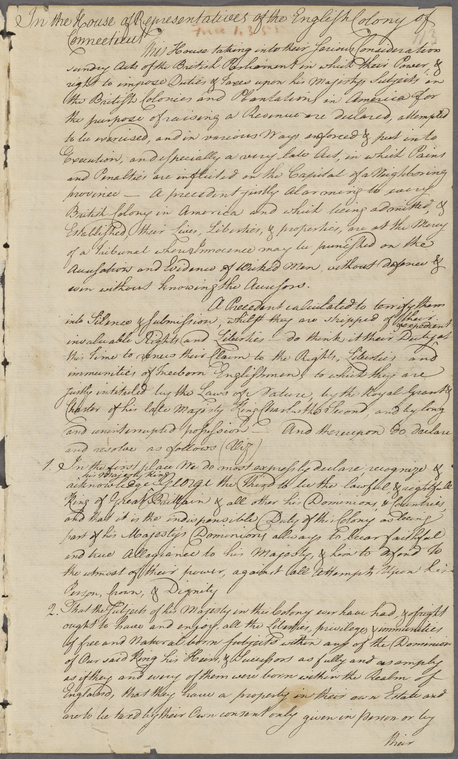 In the House of Representatives of the English Colony of
Connecticut
This House taking into their Serious Consideration
sundry Acts of the British Parliament in which their Power, &
right to impose Duties & Taxes upon his Majestys Subjects in
the British Colonies and Plantations in America for
the purpose of raising a Revenue are declared, attempted
to be exercised, and in various Ways enforced & put into
Execution, and especially a very late Act, in which Pains
and Penalties are inflicted on the Capital of a Neighboring
province — A precedent justly Alarming to every
British Colony in America and which being admitted, &
Established, their Lives, Liberties, & properties, are at the Mercy
of a Tribunal where Innocence may be punished on the
Accusation and Evidence of Wicked Men, without defence &
even without knowing the Accusors.
A Precedent calculated to terrify them
into Silence & submission, whilst they are stripped of their
invaluable Rights and Liberties do think it their Duty at expedient
the time to renew their Claim to the Rights, Liberties and
immunities of freeborn Englishmen, to which they are
justly intituled by the Laws of Nature by the Royal Grant &
Charter of his late Majesty King Charles the Second and by long
and uninterrupted possession — And thereupon do declare
and resolve as follows (Viz)
1. In the first place We do most expressly declare, recognize &
acknowledge his Majesty King George the Third to be the lawful & rightful
King of Great Brittain & all other his Dominions, & Countries
and that it is the indispensible Duty of this Colony as being
part of his Majestys Dominions always to bear faithful
and true Allegiance to his Majesty, & him to defend to
the utmost of their power, against all attempts upon his
Person, Crown, & Dignity
2. That the Subjects of his Majesty in this Colony ever have had, & of right
ought to have and enjoy all the Liberties, privileges & immunities
of free and Natural born subjects within any of the Dominions
of Our said King his Heirs, & Successors as fully and as amply
as if they and every of them were born within the Realm of
England, that they have a property in their own Estate and
are to be taxed by their Own consent only given in Person or by
their